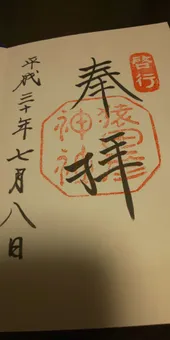 啓行
奉拝
猿田彦
神社
平成三十年七月八日